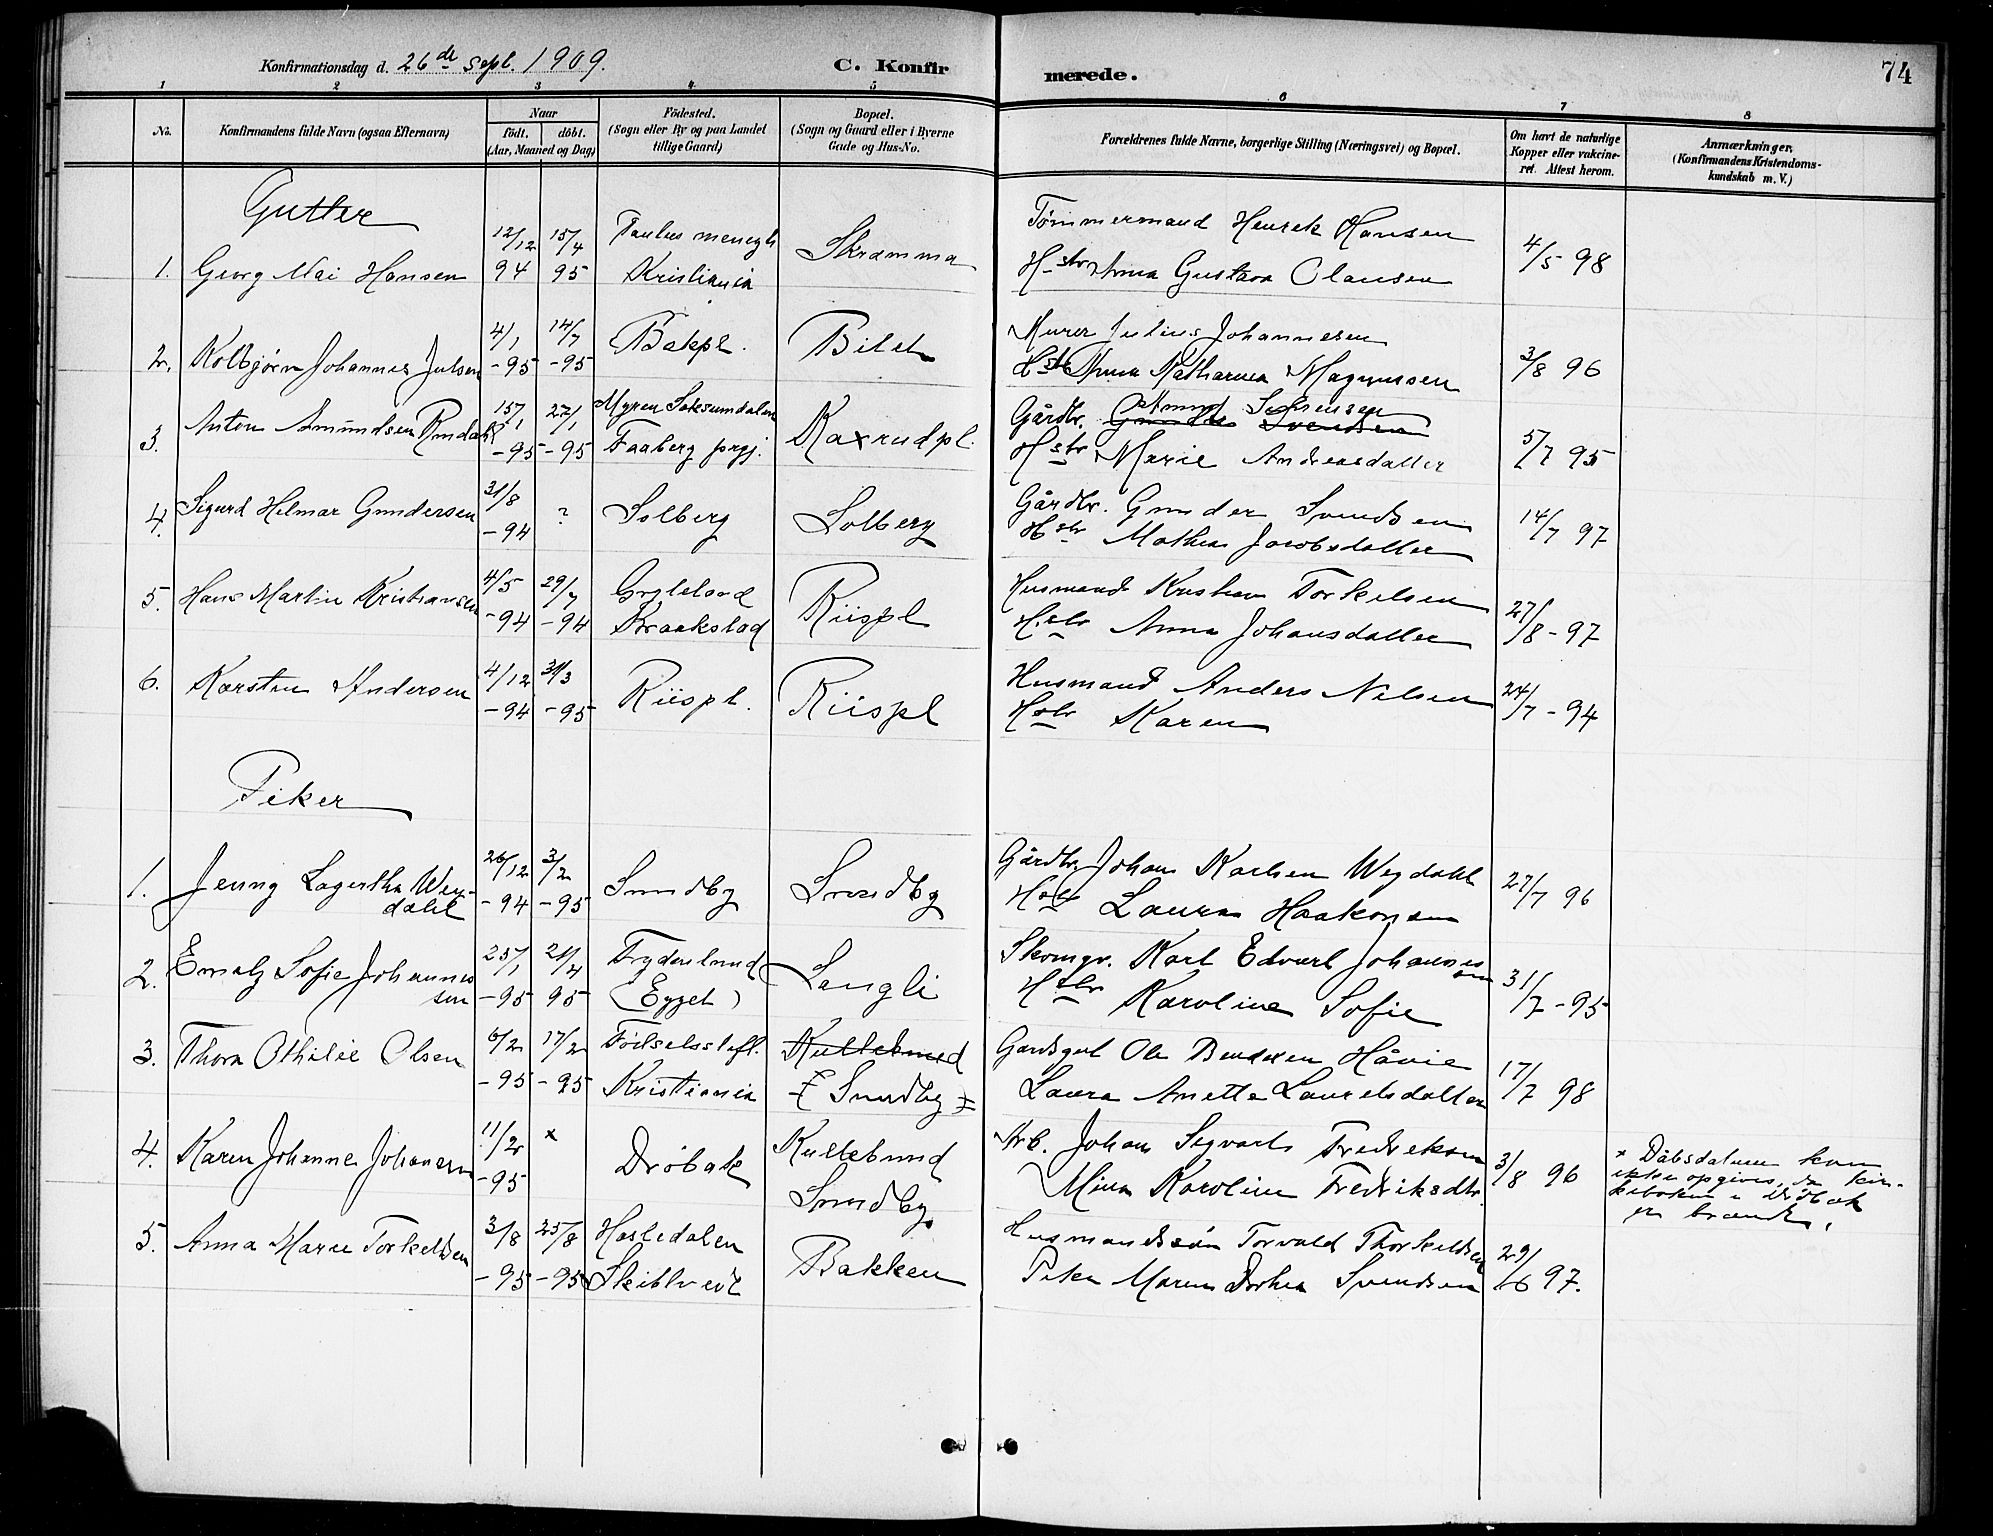 Konfirmationsdag d. 26de Sept. 1909.
C. Konfirmerede.
74
1 2 3 4 5 6 7 8
No.
Konfirmandens fulde Navn (ogsaa Efternavn)
Naar
födt. döbt.
(Aar, Maaned og Dag)
Födested.
(Sogn eller By og paa Landet
tillige Gaard)
Bopæl.
(Sogn og Gaard eller i Byerne
Gade og Hus-No.
Forældrenes fulde Navne, borgerlige Stilling (Næringsvei) og Bopæl.
Om havt de naturlige
Kopper eller vakcine-
ret. Attest herom.
Anmærkninger.
(Konfirmandens Kristendoms-
kundskab m. V.)
Gutter
12/12 15/4 Paulus menegh Tømmermand Henrik Hansen
1. Georg Mai Hansen 94 95 Kristiania Skramma Hstr Anna Gustava Olausen 4/5 98
4/1 14/7 Bakpl. Bilet Murer Julius Johannesen
2. Kolbjørn Johannes Julsen -95 -95 Hstr Anna Katharina Magnussen 3/8 96
15/1 27/1 Myren Saksumdalen Amund Sørensen
3. Anton Amundsen Rindahl -95 -95 Faaberg prgj. Kaxrudpl. Gårdbr. Gunder Svendsen
Hstr Marie Andreasdatter 5/7 95
31/8 Gårdbr. Gunder Svendsen
4. Sigurd Hilmar Gundersen -94 ? Solberg Solberg Hstr Mathea Jacobsdatter 14/7 97
4/5 29/7 Husmand Kristian Torkelsen
5. Hans Martin Kristiansen -94 -94 Kraakstad Riispl Hstr Anna Johansdatter 27/8 - 97
4/12 31/3 Husmand Anders Nilsen
6. Karsten Andersen -94 -95 Riispl. Riispl Hstr Karen 24/7 - 94
Piker
26/12 3/2 Gårdbr. Johan Karlsen Weydahl
1. Jenny Lagertha Wey-
dahl -94 -95 Sundby Sundby Hstr Laura Haakonsen 27/7 96
25/1 21/4 Frydenlund Skomgr. Karl Edvart Johannes
sen
2. Emaly Sofie Johannes
sen -95 95 (Egget) Langli Hstr Karoline Sofie 31/7 - 95
6/2 17/2 Fødselsstift. Kullebund Gardsgut Ole Bendixen Håvie
3. Thora Othilie Olsen -95 -95 Kristiania Sundby Laura Anette Lauritsdatter 17/7 98
11/2 x Kullebund Arb. Johan Sigvart Fredriksen
4. Karen Johanne Johansen -95 Drøbak Sundby Mina Karoline Fredriksdtr 3/8 96
x Dåbsdatum kan
ikke opgives, da kir-
keboken i Drøbak
er brændt.
3/8 25/8 Hasledalen Husmandssøn Torvald Thorkeldsen
5. Anna Marie Torkeldsen -95 -95 Skibtvedt Bakken Pike Maren Dorthea Svendsen 29/6 97.